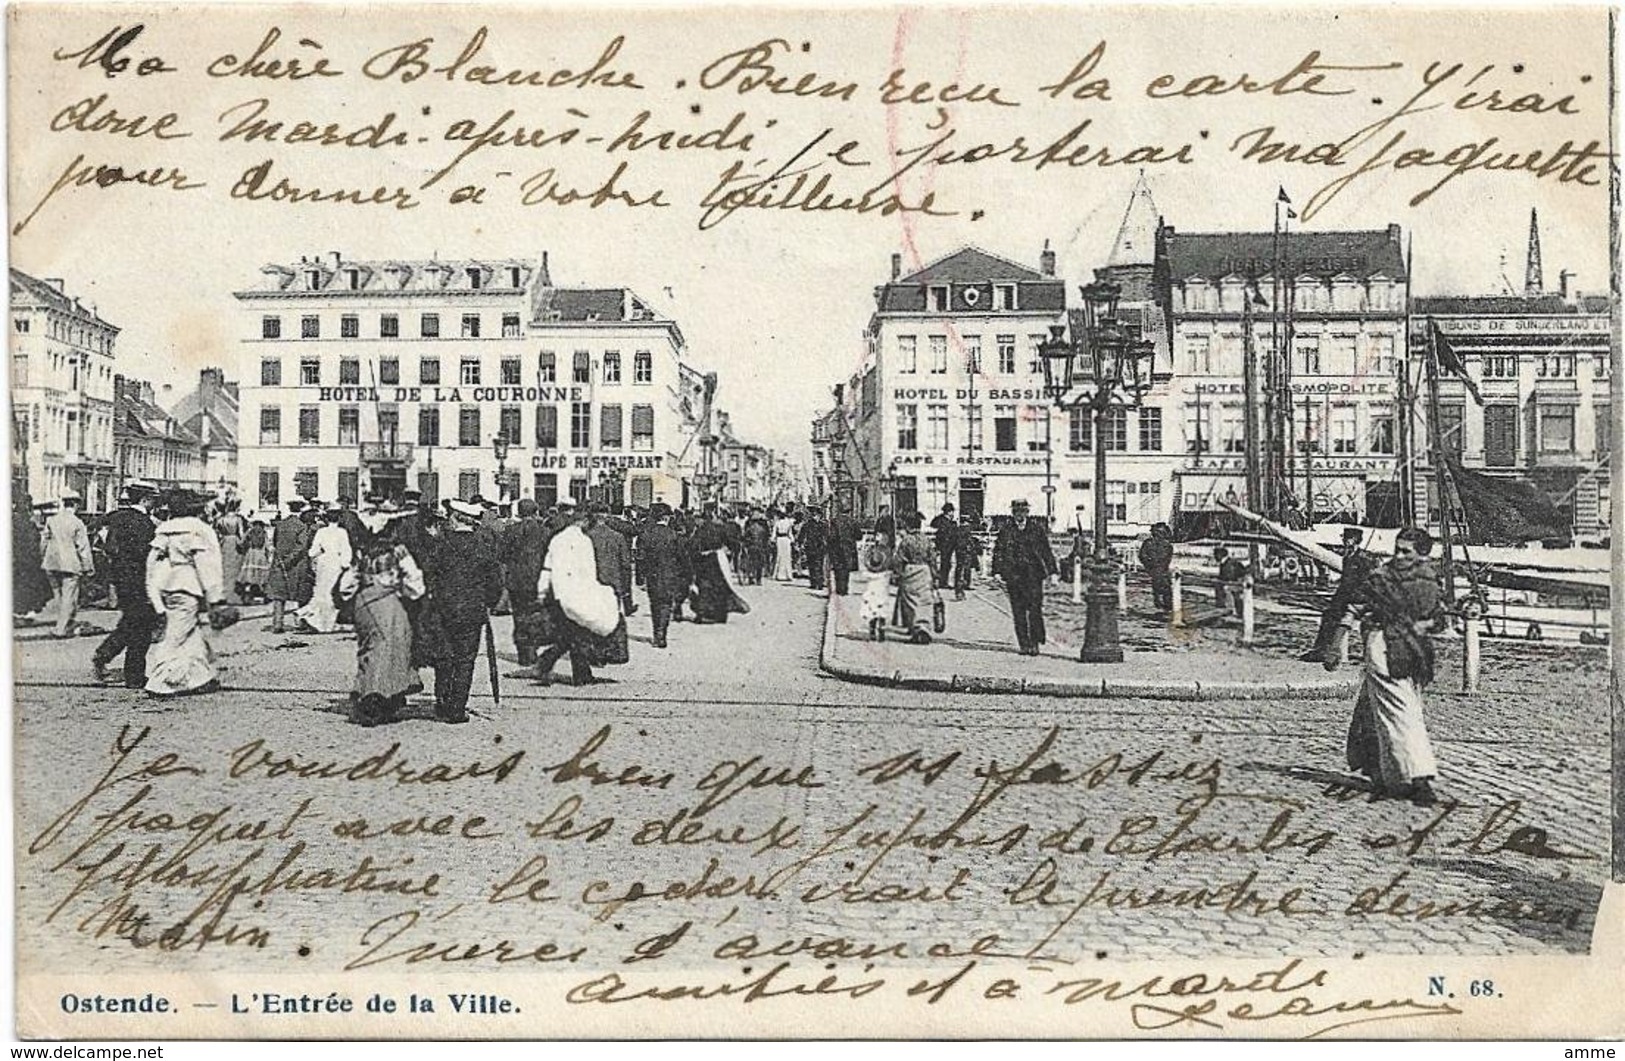 Ma chère Blanche. Bien reçu la carte. J'irai
donc Mardi-après-midi, je porterai ma jaquette
pour donner à votre tailleuse.
HOTEL DE LA COURONNE
CAFÉ RESTAURANT
HOTEL DU BASSIN
CAFÉ RESTAURANT
HOTEL COSMOPOLITE
CAFÉ RESTAURANT
DE SUNDERLAND ET
Je voudrais bien que vs fassiez un
paquet avec les deux jupons de Charles et la
phosphatine, le cocher irait le prendre demain
matin. Merci d'avance
amitiés et à mardi
Jeanne
Ostende. — L'Entrée de la Ville.
N. 68.
© delcampe.net
amme